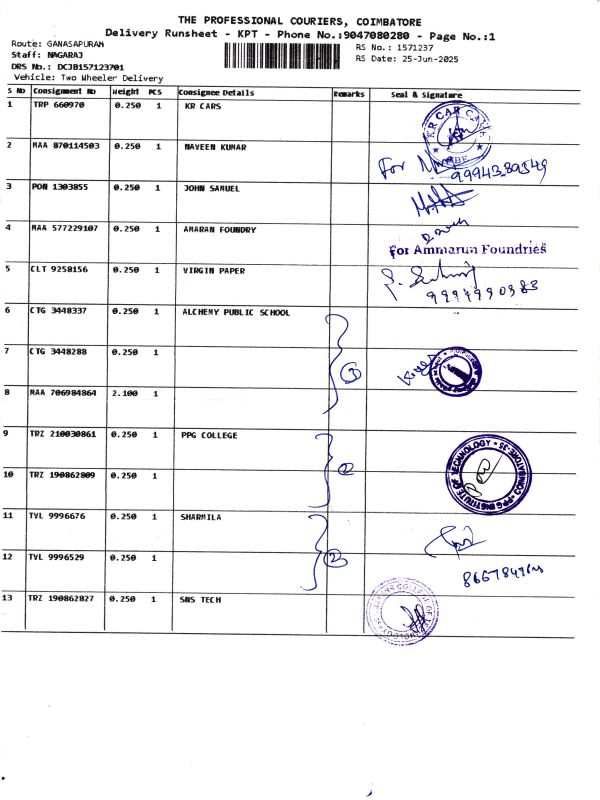 THE PROFESSIONAL COURIERS, COIMBATORE
Delivery Runsheet - KPT - Phone No.:9047080280 - Page No.:1
Route: GANASAPURAM
RS No.: 1571237
Staff: NAGARAJ
RS Date: 25-Jun-2025
DRS No.: DCJB157123701
Vehicle: Two Wheeler Delivery
S No Consignment No Weight PCS Consignee Details Remarks Seal & Signature
1 TRP 660970 0.250 1 KR CARS
KR CAR CARE
2 MAA 870114503 0.250 1 NAVEEN KUMAR
For
3 PON 1303855 0.250 1 JOHN SAMUEL
4 MAA 577229107 0.250 1 AMARAN FOUNDRY
For Ammarun Foundries
5 CLT 9258156 0.250 1 VIRGIN PAPER
6 CTG 3448337 0.250 1 ALCHEMY PUBLIC SCHOOL
7 CTG 3448288 0.250 1
3
8 MAA 706984864 2.100 1
9 TRZ 210030861 0.250 1 PPG COLLEGE
2
PPG INSTITUTE OF TECHNOLOGY COIMBATORE-35
10 TRZ 190862809 0.250 1
11 TVL 9996676 0.250 1 SHARMILA
2
12 TVL 9996529 0.250 1
13 TRZ 190862827 0.250 1 SNS TECH